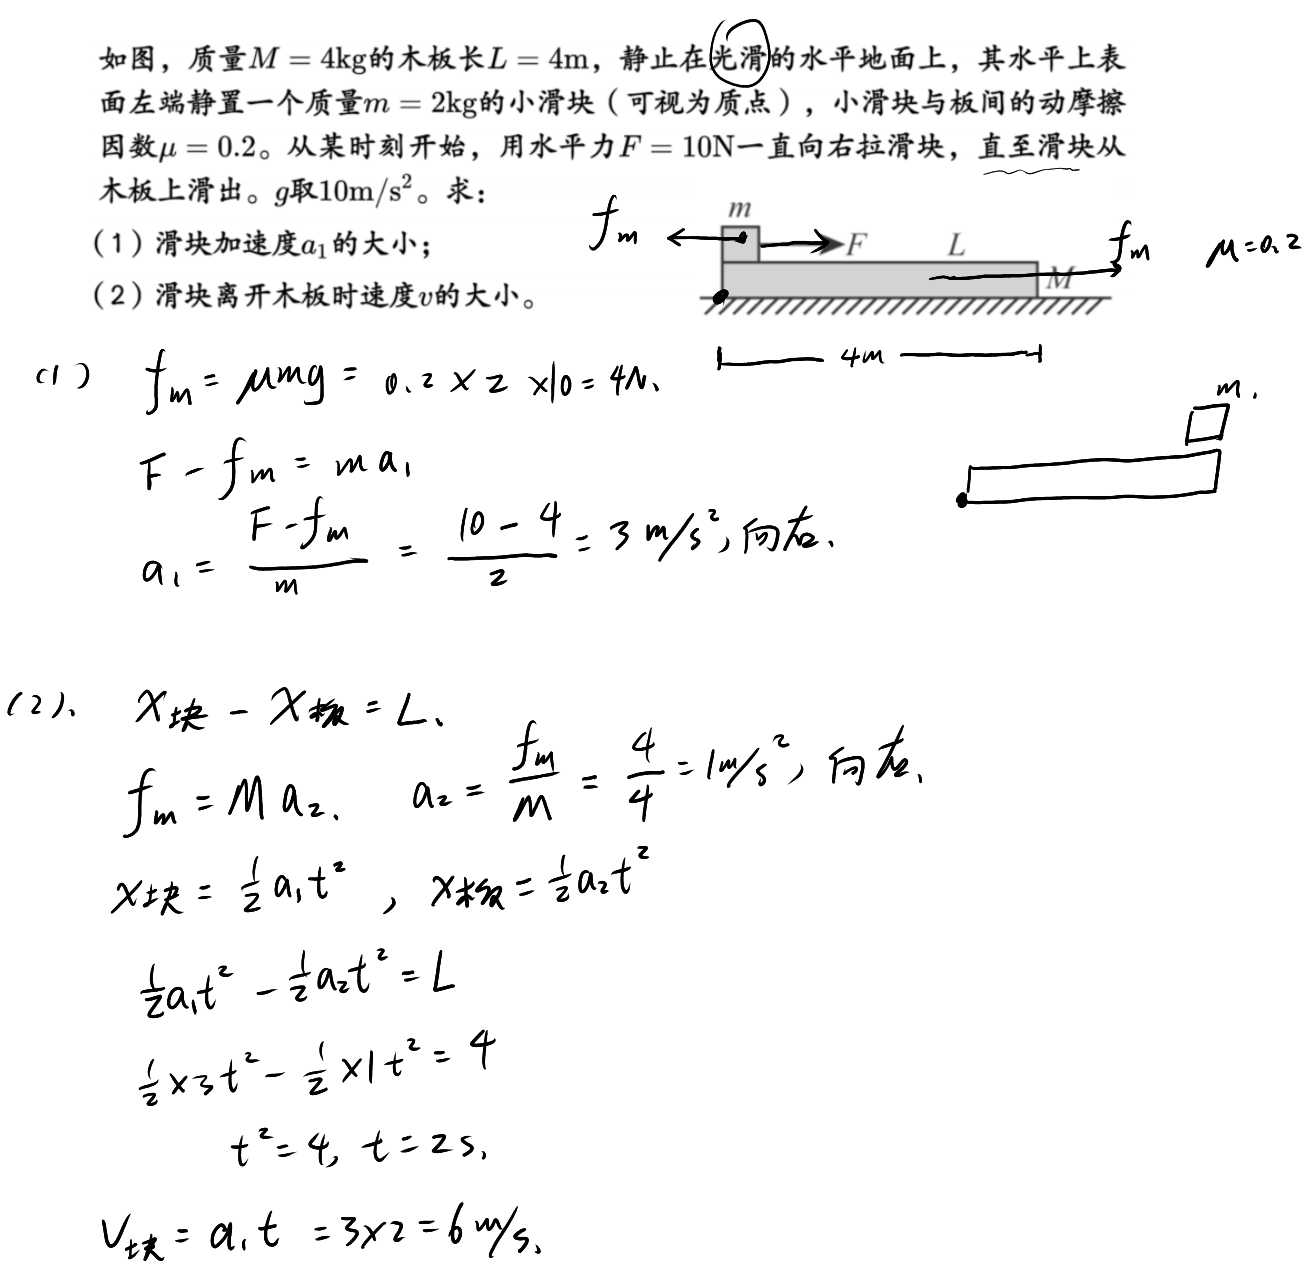 如图，质量M = 4kg的木板长L = 4m，静止在光滑的水平地面上，其水平上表
面左端静置一个质量m = 2kg的小滑块（可视为质点），小滑块与板间的动摩擦
因数μ = 0.2。从某时刻开始，用水平力F = 10N一直向右拉滑块，直至滑块从
木板上滑出。g取10m/s²。求：
（1）滑块加速度a₁的大小；
（2）滑块离开木板时速度v的大小。
m
fₘ
F
L
fₘ
M
μ=0.2
4m
m.
(1) fₘ = μmg = 0.2 × 2 ×10 = 4N、
F - fₘ = m a₁
a₁ = (F - fₘ)/m = (10 - 4)/2 = 3 m/s², 向右.
(2)、 X块 - X板 = L、
fₘ = M a₂. a₂ = fₘ/M = 4/4 = 1m/s², 向右、
X块 = ½ a₁t² , X板 = ½ a₂t²
½a₁t² - ½a₂t² = L
½×3t² - ½×1t² = 4
t² = 4, t = 2s.
V块 = a₁t = 3×2 = 6m/s.